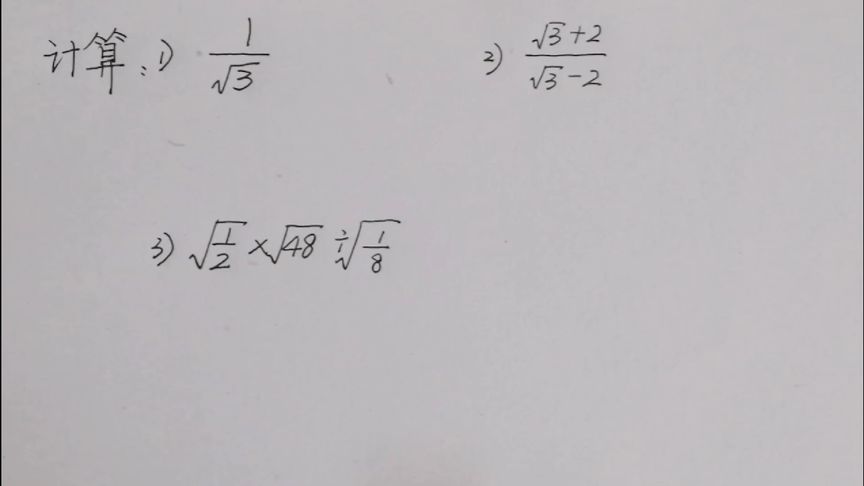 计算：1) 1/√3 2) (√3+2)/(√3-2)
3) √(1/2) × √48 ÷ √(1/8)